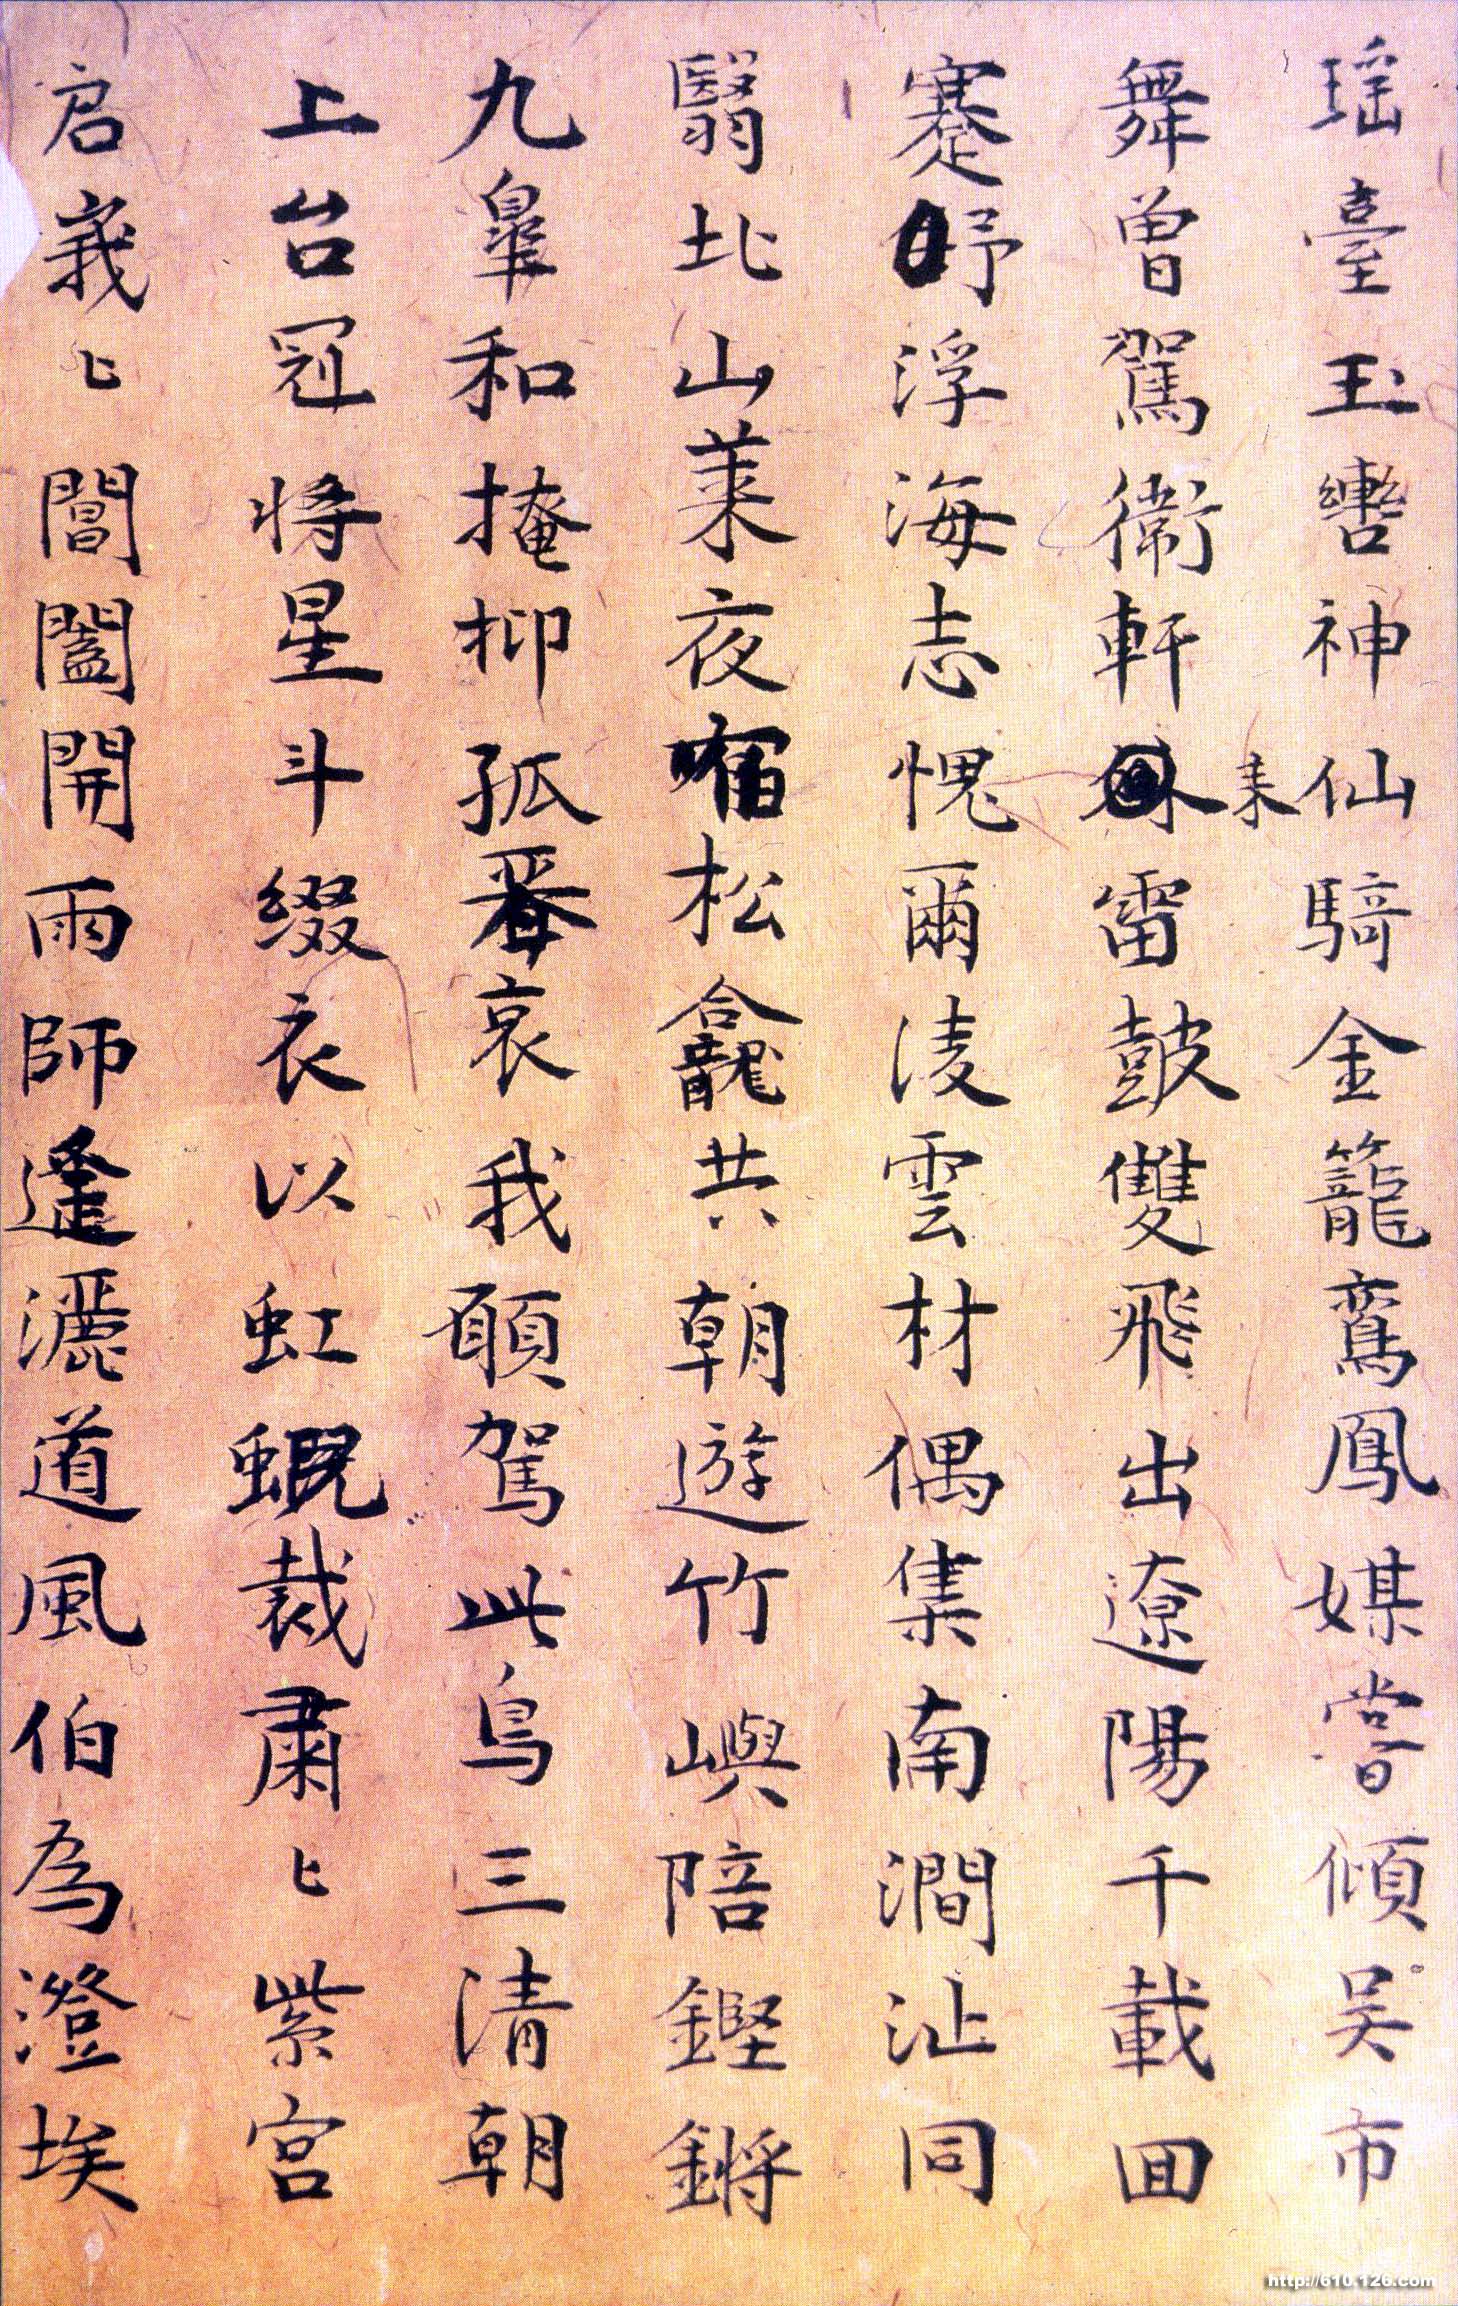 瑶臺玉轡神仙騎金籠鸞鳳媒嘗傾吳市
舞曾駕衛軒來雷鼓雙飛出遼陽千載囬
蹇予浮海志愧爾淩雲材偶集南澗沚同
翳北山萊夜宿松龕共朝遊竹嶼陪鏗鏘
九臯和掩抑孤哀我願駕此鳥三清朝
上台冠將星斗綴衣以虹蜺裁肅〻紫宮
启峩〻閶闔開雨師逢灑道風伯為澄埃
http://610.126.com